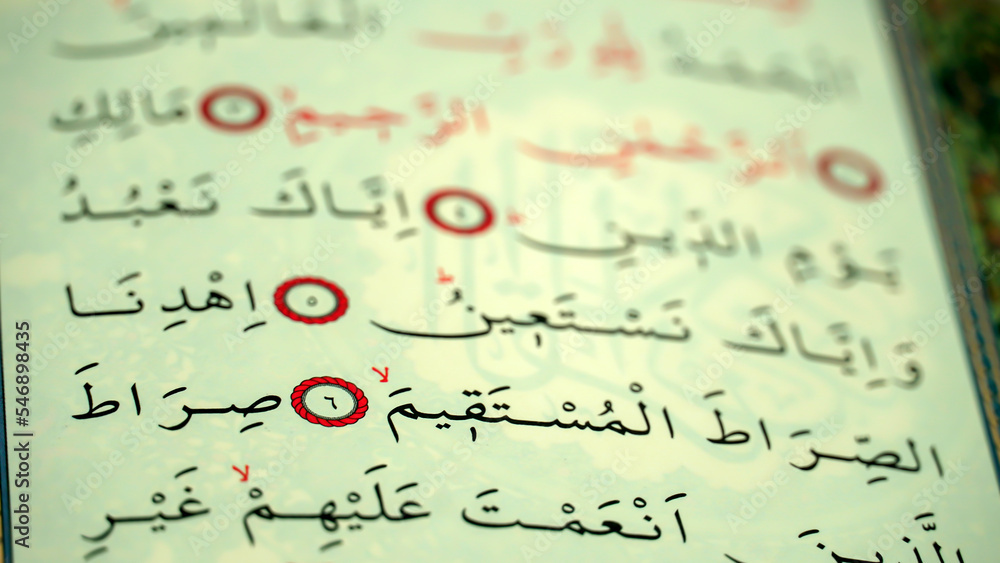 الْعَالَمِينَ
اَلرَّحْمٰنِ الرَّحِيمِ ﴿٣﴾ مَالِكِ
يَوْمِ الدِّينِ ﴿٤﴾ اِيَّاكَ نَعْبُدُ
وَاِيَّاكَ نَسْتَعِينُ ﴿٥﴾ اِهْدِنَا
الصِّرَاطَ الْمُسْتَقِيمَ ﴿٦﴾ صِرَاطَ
الَّذِينَ اَنْعَمْتَ عَلَيْهِمْ غَيْرِ
Adobe Stock | #546898435